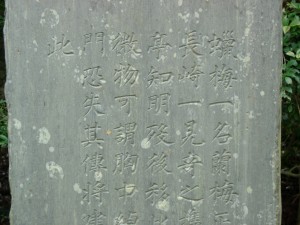 蠟梅一名蘭梅
長崎一見奇之
亭知明歿後移
微物可謂胸中
門恐失其傳將
此